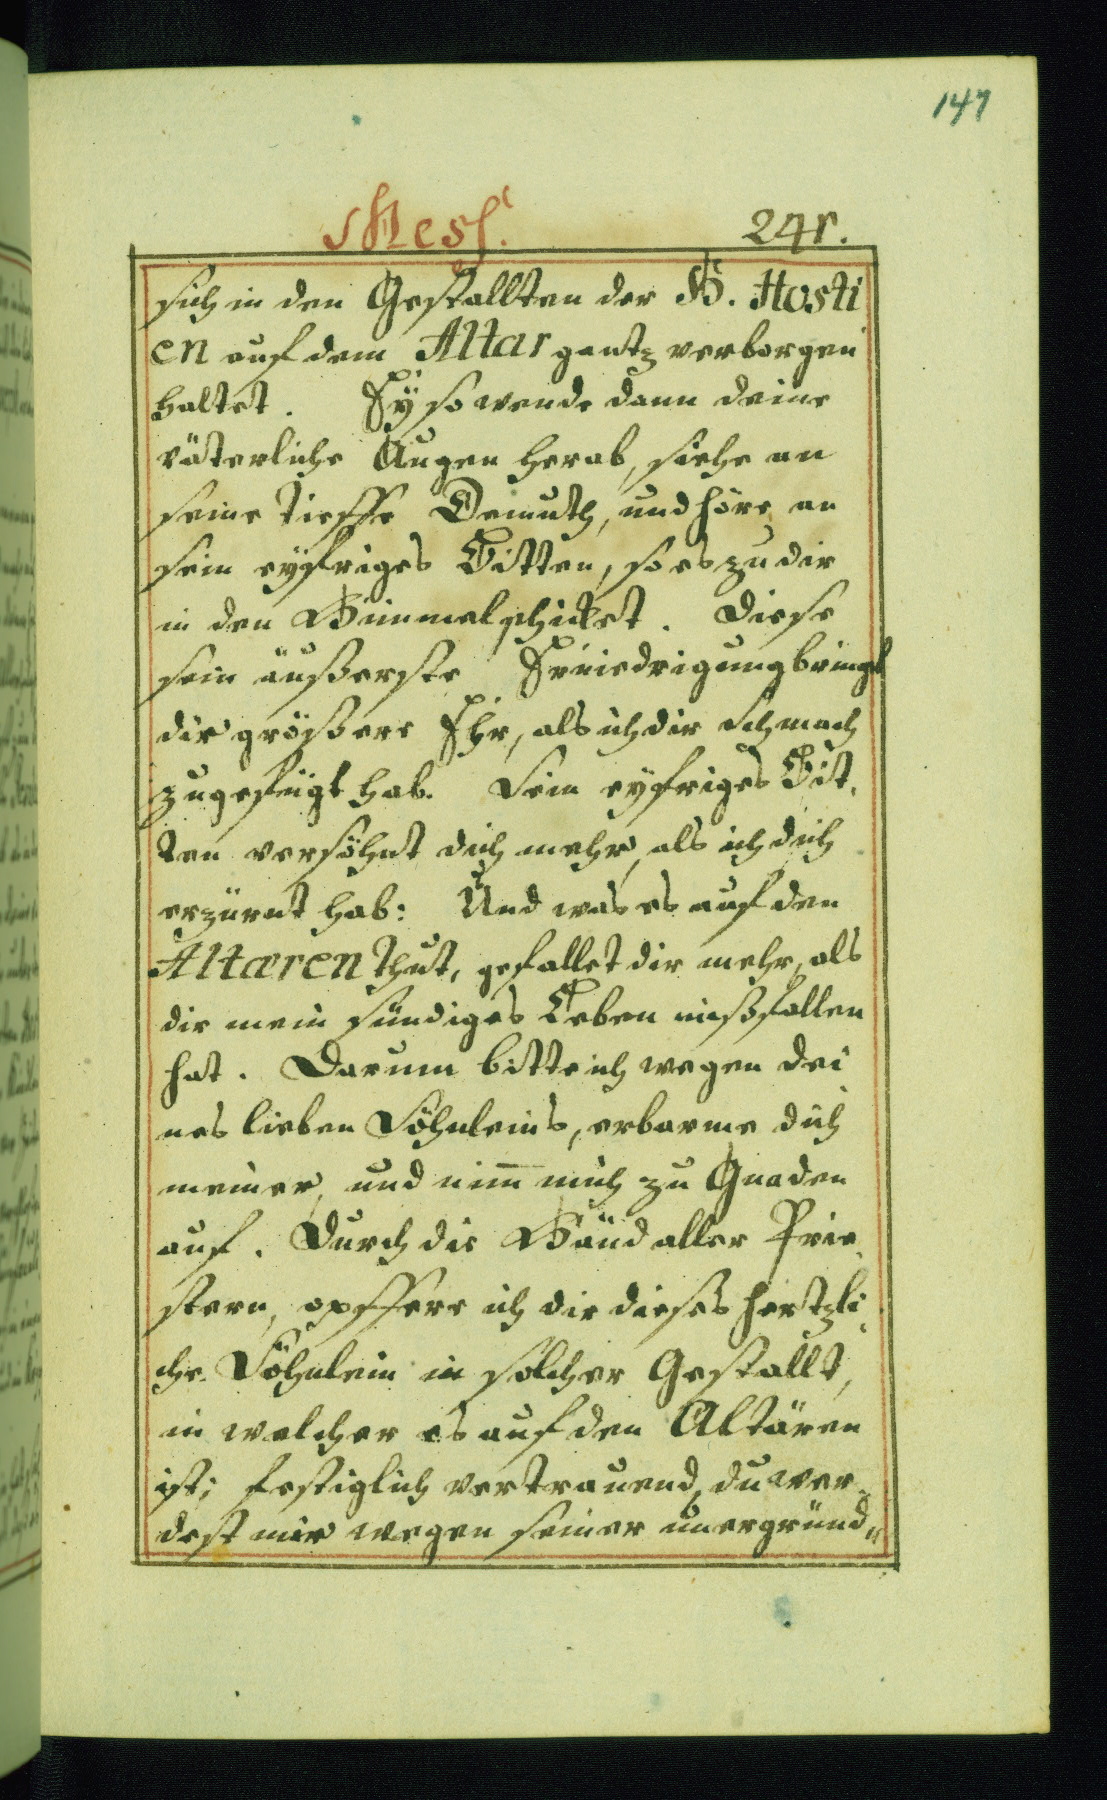 147
Mess. 241.
sich in den Gestallten der H. Hosti
en auf dem Altar gantz verborgen
haltet. Ey so wende dann deine
väterliche Augen herab, siehe an
seine tieffe Demuth, und höre an
sein eyfriges Bitten, so es zu dir
in den Himmel schicket. Diese
sein äußerste Erniedrigung bringt
dir größere Ehr, als ich dir schmach
zugefügt hab. Sein eyfriges Bit,
ten versöhnt dich mehr, als ich dich
erzürnt hab: Und was es auf den
Altæren thut, gefallet dir mehr, als
dir mein sündiges Leben mißfallen
hat. Darum bitte ich wegen dei
nes lieben Söhnleins, erbarme dich
meiner, und nim̅ mich zu Gnaden
auf. Durch die Händ aller Prie,
stern, opffere ich dir dieses hertzli,
che Söhnlein in solcher Gestallt,
in welcher es auf den Altären
ist; festiglich vertrauend, du wer,
dest mir wegen seiner unergründ„